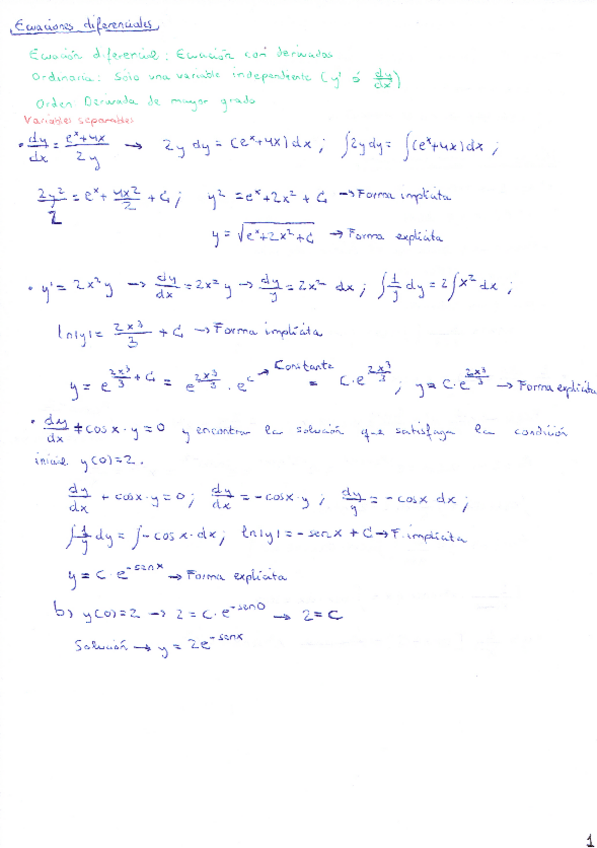 Ecuaciones diferenciales
Ecuación diferencial: Ecuación con derivadas
Ordinaria: Sólo una variable independiente (y' ó dy/dx)
Orden: Derivada de mayor grado
Variables separables
• dy/dx = (e^x+4x)/2y → 2y dy = (e^x+4x)dx ; ∫2y dy = ∫(e^x+4x)dx ;
2y²/2 = e^x + 4x²/2 + C ; y² = e^x+2x² + C → Forma implícita
y = √(e^x+2x²+C) → Forma explícita
• y' = 2x²y → dy/dx = 2x²y → dy/y = 2x² dx ; ∫1/y dy = 2∫x² dx ;
ln|y| = 2x³/3 + C → Forma implícita
y = e^(2x³/3 + C) = e^(2x³/3) · e^C → Constante = C·e^(2x³/3) ; y = C·e^(2x³/3) → Forma explícita
• dy/dx + cosx·y = 0 y encontrar la solución que satisfaga la condición
inicial y(0)=2.
dy/dx + cosx·y = 0 ; dy/dx = -cosx·y ; dy/y = -cosx dx ;
∫1/y dy = ∫-cosx·dx ; ln|y| = -senx + C → F. implícita
y = C·e^(-senx) → Forma explícita
b) y(0)=2 → 2 = C·e^(-sen0) → 2 = C
Solución → y = 2e^(-senx)
1